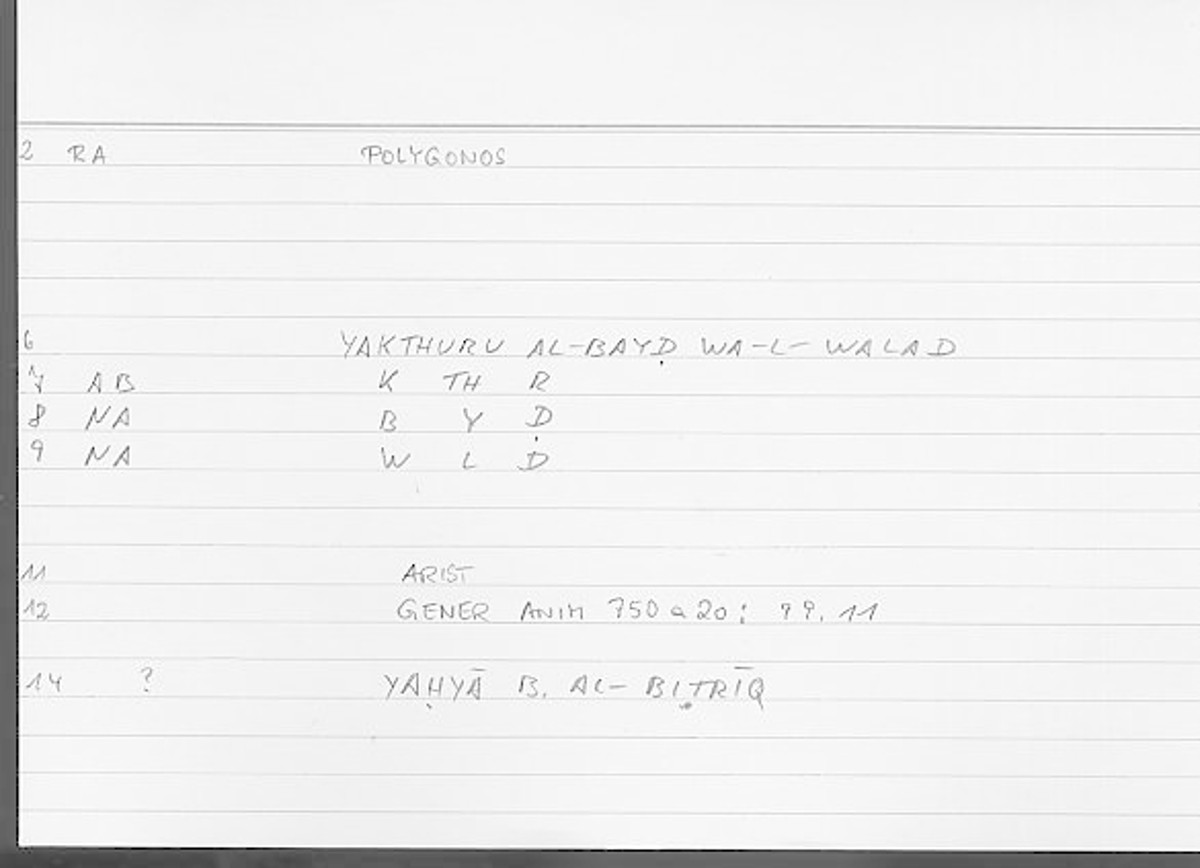 2 RA POLYGONOS
6 YAKTHURU AL-BAYḌ WA-L-WALAD
7 AB K TH R
8 NA B Y Ḍ
9 NA W L D
11 ARIST
12 GENER ANIM 750 a 20 : 99. 11
14 ? YAḤYĀ B. AL-BIṬRĪQ